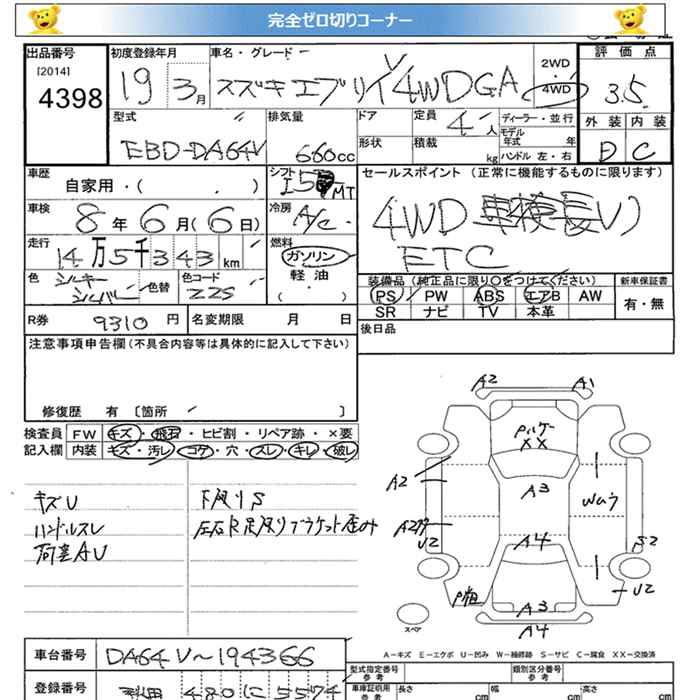 完全ゼロ切りコーナー
出品番号 初度登録年月 車名・グレード 評価点
[2014] 4398 19 3月 スズキ エブリイ 4WD GA 2WD 4WD 3.5
型式 排気量 ドア 定員 4人 ディーラー・並行 外装 内装
EBD-DA64V 660cc 形状 積載 kg モデル年式 年 ハンドル 左・右 D C
車歴 自家用・( ) シフト I5 MT セールスポイント (正常に機能するものに限ります)
車検 8年 6月 (6日) 冷房 A/C 4WD 車検長い)
走行 14万5千343km 燃料 ガソリン ETC
色 シルキーシルバー 色替 色コード Z2S 軽油 ( ・ )
装備品 (純正品に限り○をつけてください) 新車保証書
PS PW ABS エアB AW 有・無
SR ナビ TV 本革
R券 9310円 名変期限 月 日 後日品
注意事項申告欄 (不具合内容等は具体的に記入して下さい)
修復歴 有 〔箇所 〕
検査員 FW キズ・飛石・ヒビ割・リペア跡・×要
記入欄 内装 キズ・汚レ・コゲ・穴・スレ・キレ・破レ
キズU 下廻りS
ハンドルスレ 左右R足廻りブラケット歪み
荷室AU
A2 A1
XX
A3
A2 Wau
U2 A4 S2
U2
A3
A4
スペア
A－キズ E－エクボ U－凹み W－補修跡 S－サビ C－腐食 XX－交換済
車台番号 DA64V～194366 型式指定番号 参考 類別区分番号 参考
登録番号 480 に 5574 車庫証明用 参考 長さ cm 幅 cm 高さ cm